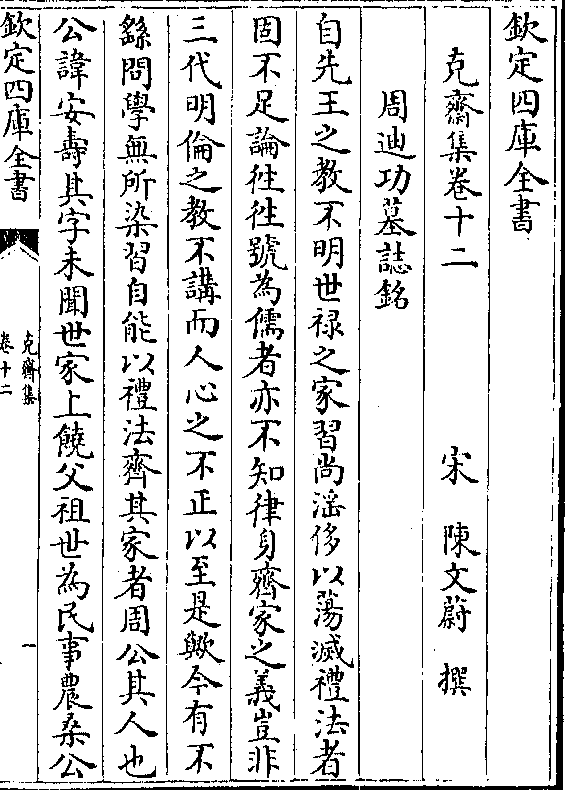 欽定四庫全書
克齋集卷十二
宋 陳文蔚 撰
周迪功墓誌銘
自先王之教不明世禄之家習尚滛侈以蕩滅禮法者
固不足論徃徃號為儒者亦不知律身齊家之義豈非
三代明倫之教不講而人心之不正以至是歟今有不
繇問學無所染習自能以禮法齊其家者周公其人也
公諱安壽其字未聞世家上饒父祖世為民事農桑公
欽定四庫全書
克齋集
卷十二
一